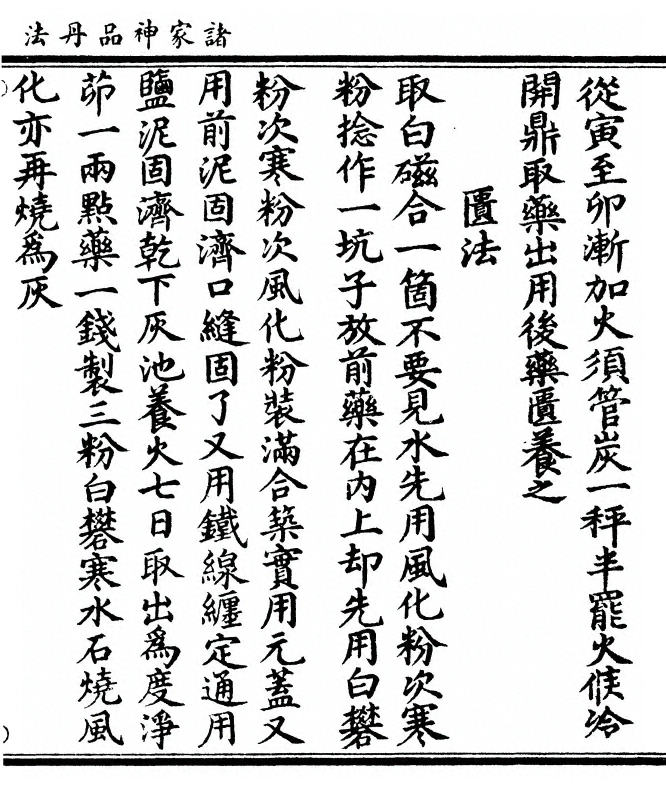 諸家神品丹法
從寅至卯漸加火須管炭一秤半罷火候冷
開鼎取藥出用後藥匱養之
匱法
取白磁合一箇不要見水先用風化粉次寒
粉捻作一坑子放前藥在内上却先用白礬
粉次寒粉次風化粉裝滿合築實用元蓋又
用前泥固濟口縫固了又用鐵線纏定通用
鹽泥固濟乾下灰池養火七日取出爲度淨
茆一兩點藥一錢製三粉白礬寒水石燒風
化亦再燒爲灰